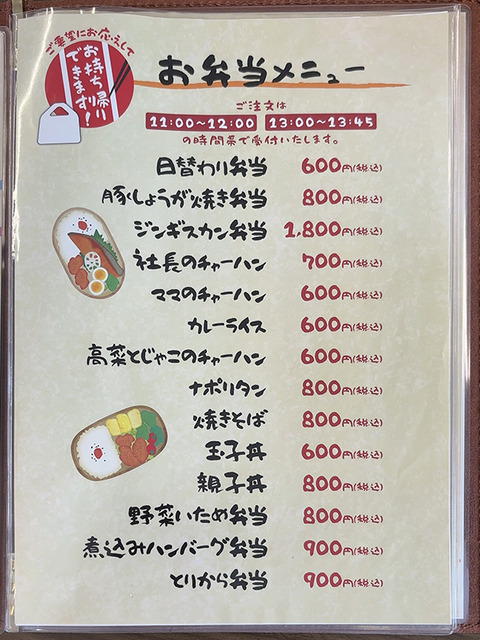 ご要望にお応えして
お持ち帰り
できます！
お弁当メニュー
ご注文は
11:00～12:00 13:00～13:45
の時間帯で受付いたします。
日替わり弁当 600円(税込)
豚しょうが焼き弁当 800円(税込)
ジンギスカン弁当 1,800円(税込)
社長のチャーハン 700円(税込)
ママのチャーハン 600円(税込)
カレーライス 600円(税込)
高菜とじゃこのチャーハン 600円(税込)
ナポリタン 800円(税込)
焼きそば 800円(税込)
玉子丼 600円(税込)
親子丼 800円(税込)
野菜いため弁当 800円(税込)
煮込みハンバーグ弁当 900円(税込)
とりから弁当 900円(税込)